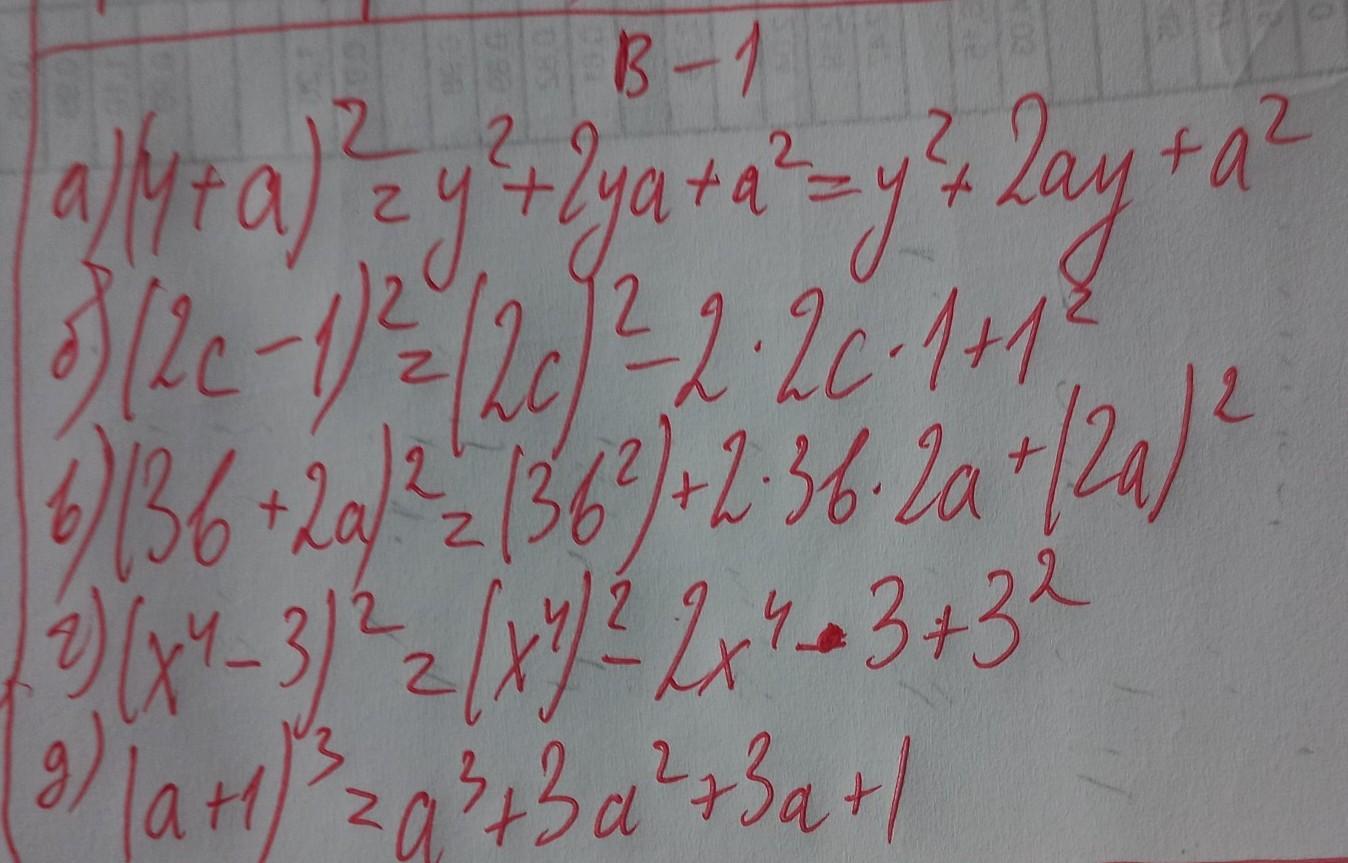 В-1
а) (y+a)² = y²+2ya+a² = y²+2ay+a²
б) (2c-1)² = (2c)²-2·2c·1+1²
в) (3b+2a)² = (3b²)+2·3b·2a+(2a)²
г) (x⁴-3)² = (x⁴)²-2x⁴·3+3²
д) (a+1)³ = a³+3a²+3a+1